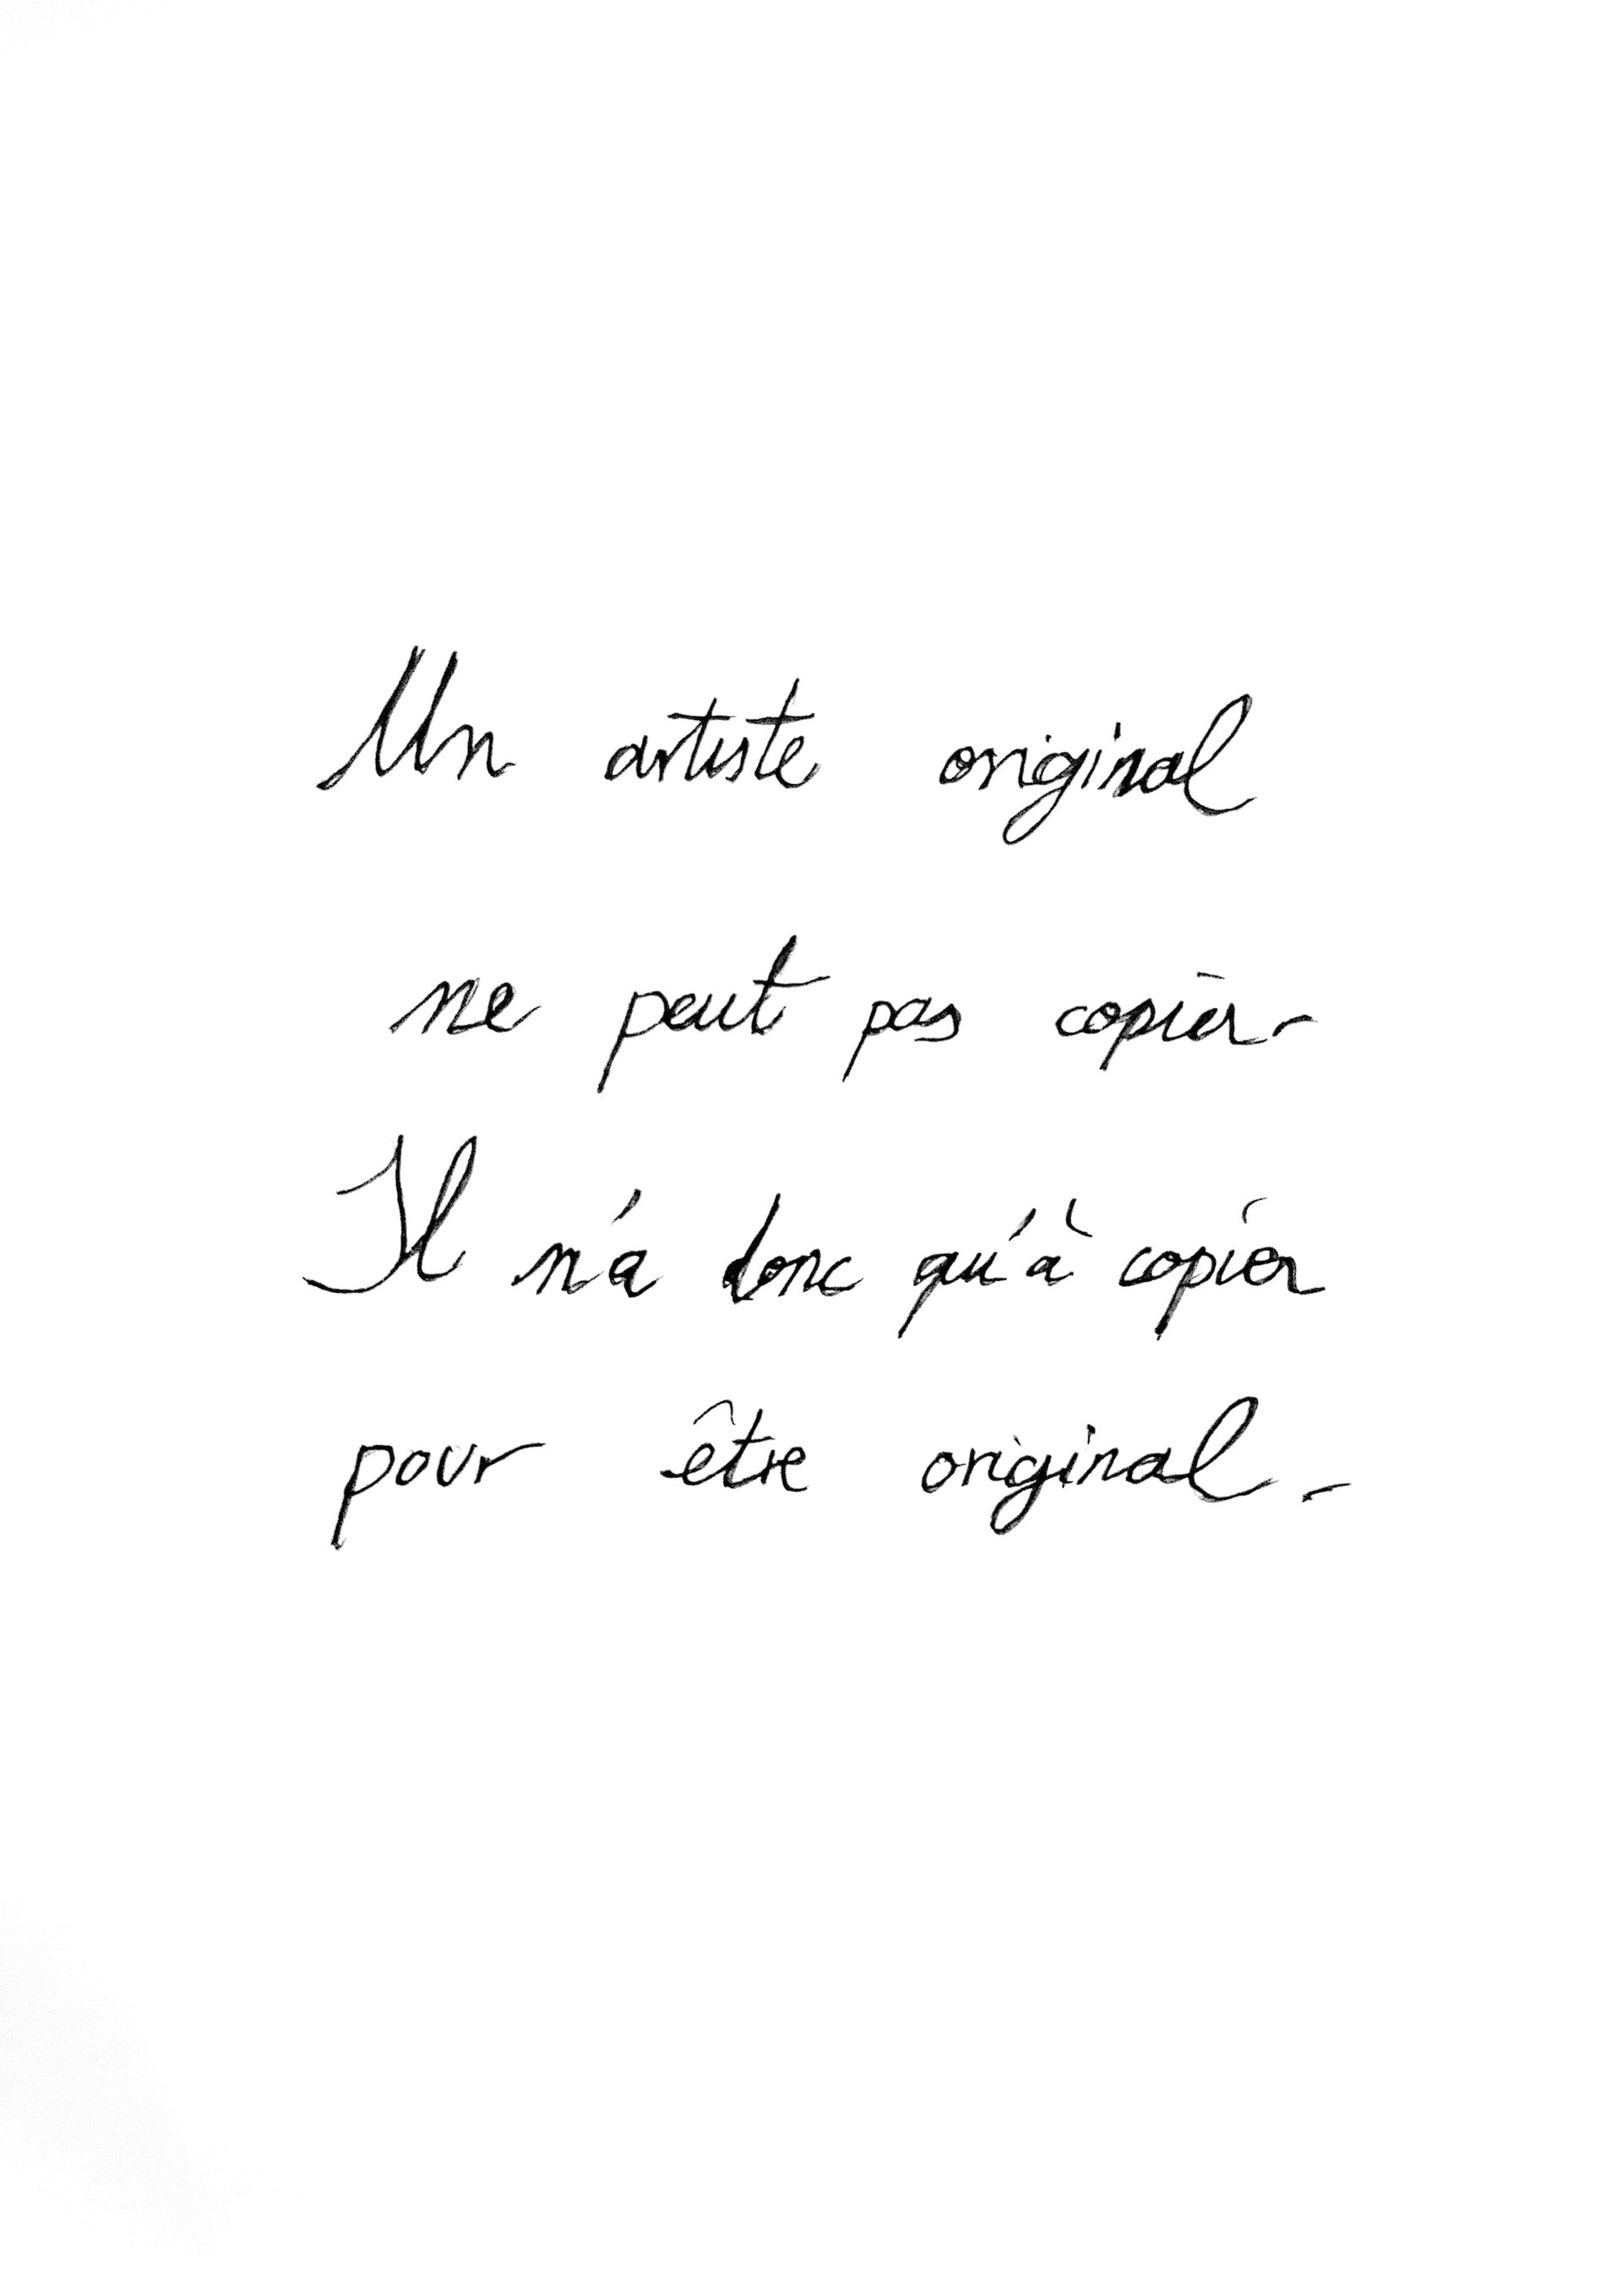 Un artiste original
ne peut pas copier.
Il n'a donc qu'à copier
pour être original.